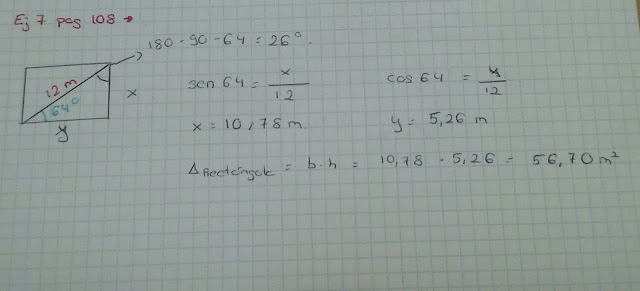 Ej 7 pag 108 →
180 - 90 - 64 = 26°.
12 m
64°
x
y
sen 64 = x/12
cos 64 = y/12
x = 10,78 m
y = 5,26 m
A Rectángulo = b·h = 10,78 · 5,26 = 56,70 m²